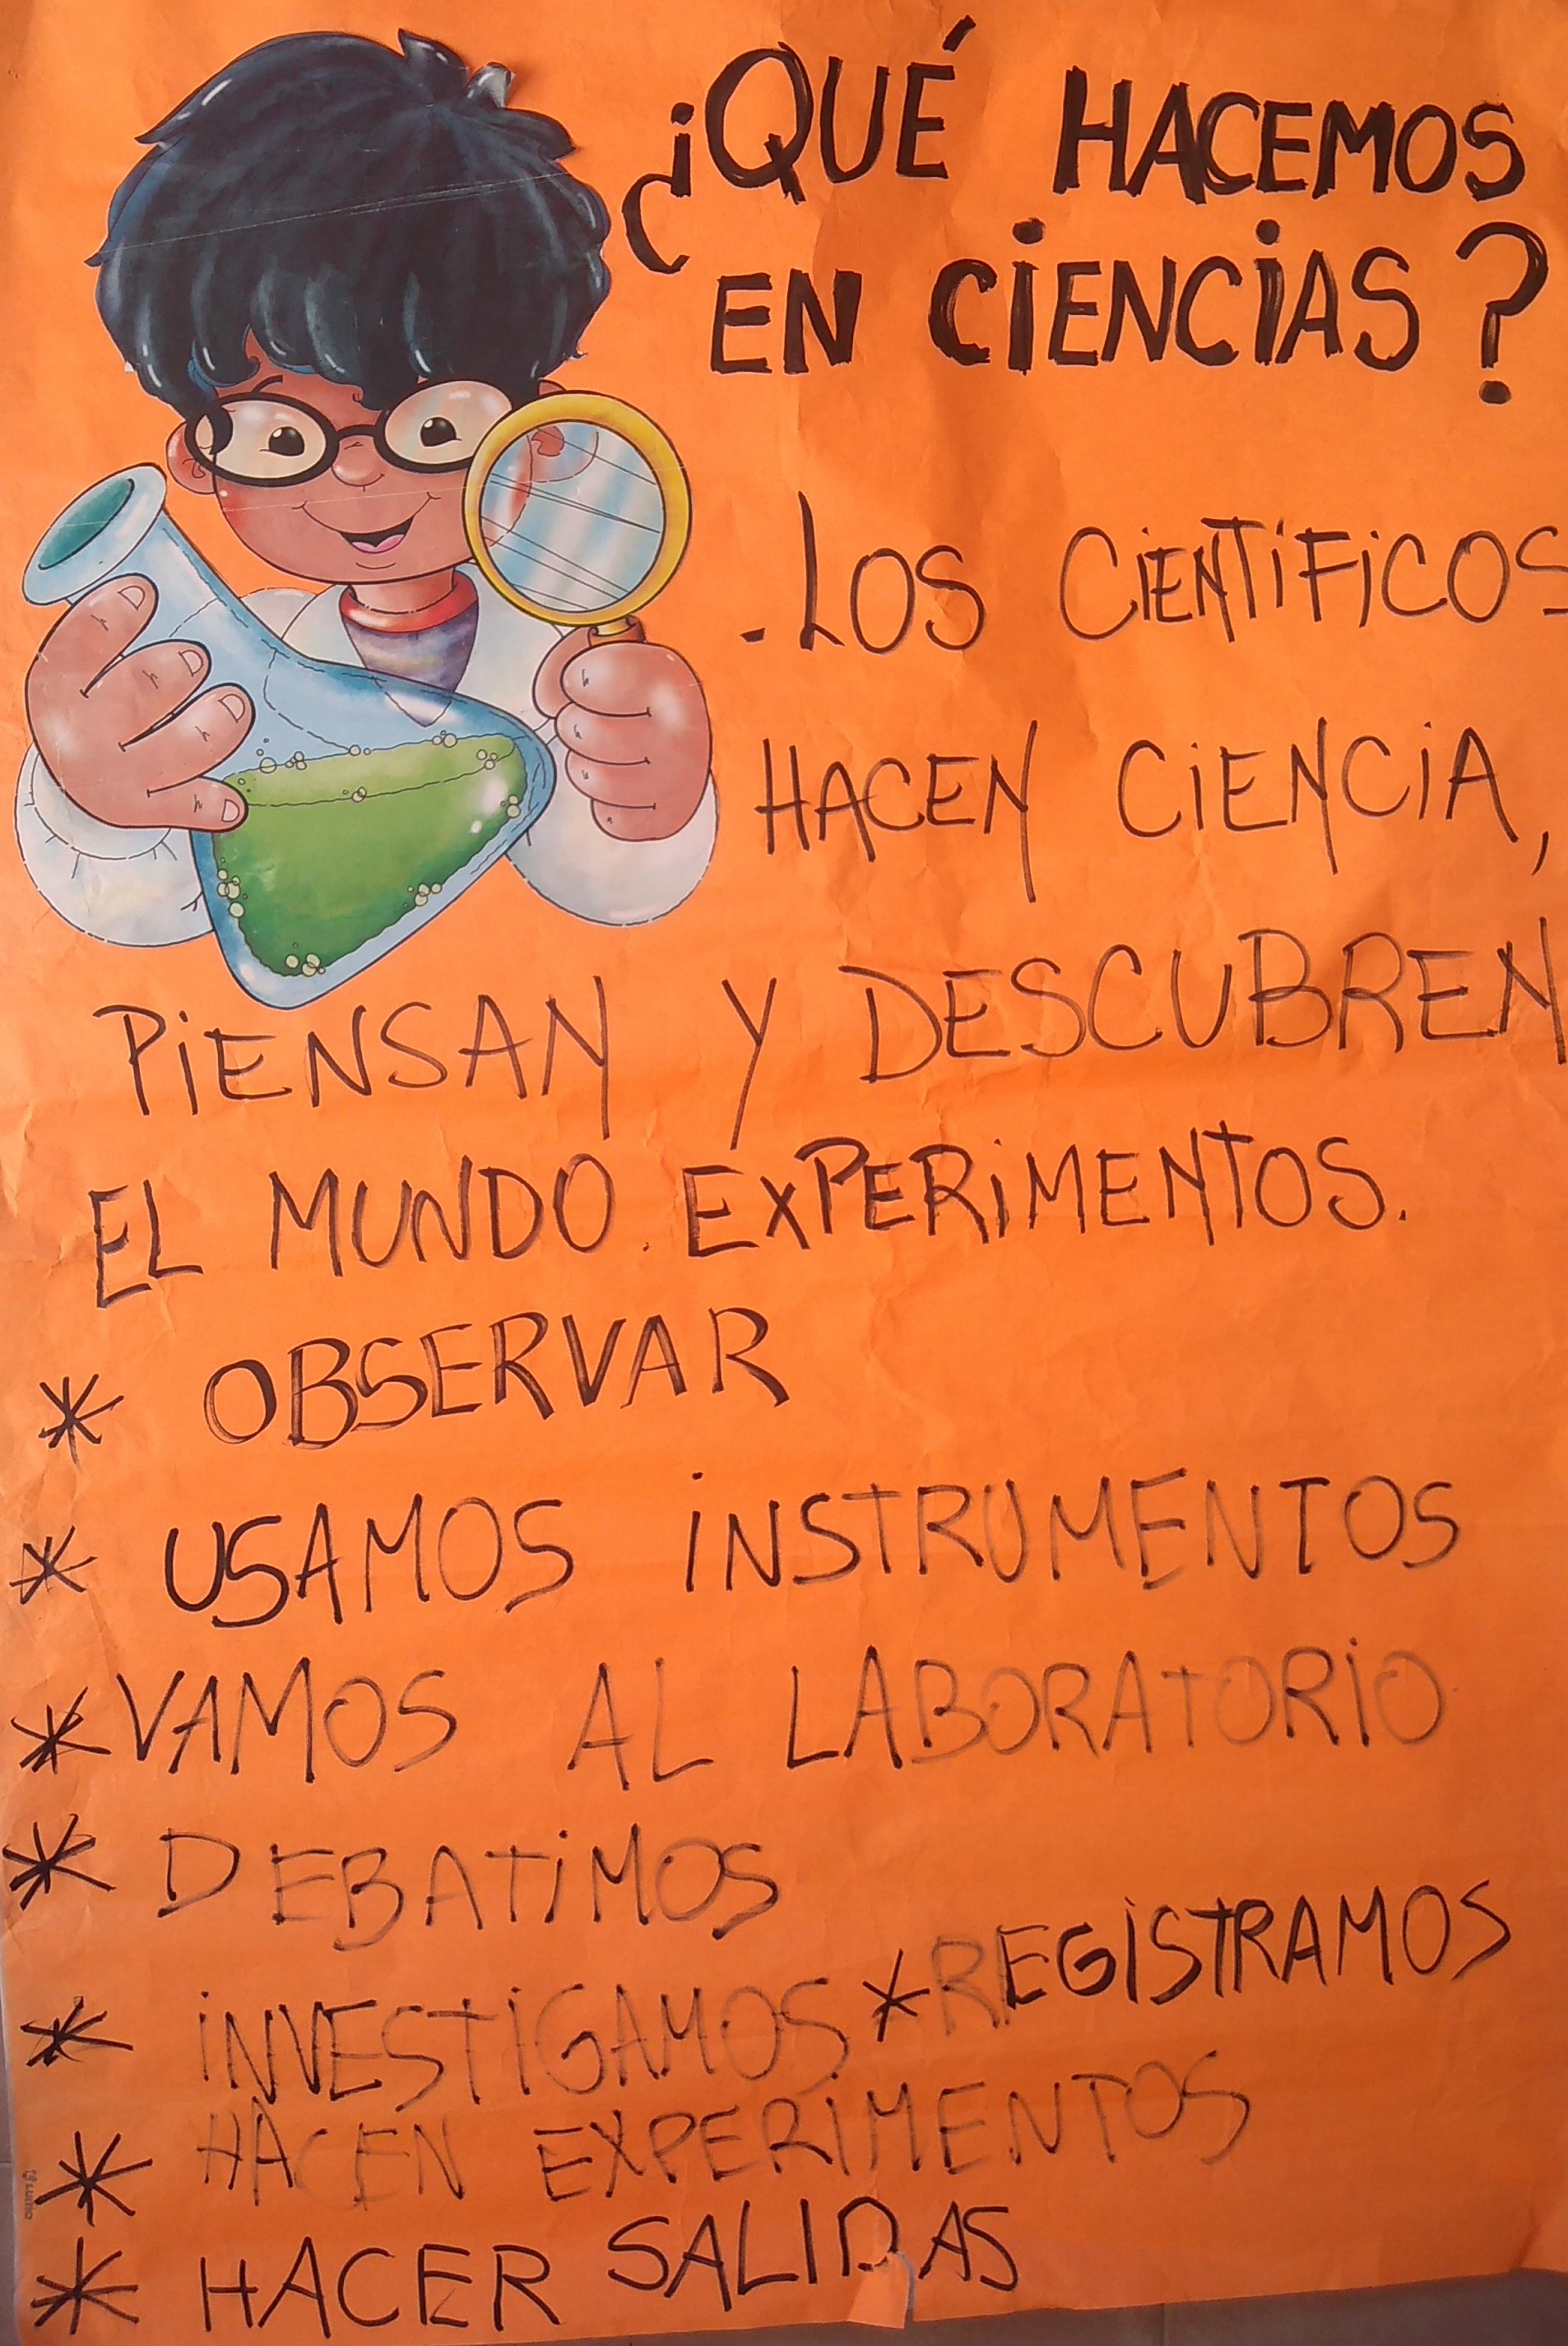 ¿QUÉ HACEMOS
EN CIENCIAS?
-LOS CIENTÍFICOS
HACEN CIENCIA,
PIENSAN Y DESCUBREN
EL MUNDO. EXPERIMENTOS.
* OBSERVAR
* USAMOS INSTRUMENTOS
* VAMOS AL LABORATORIO
* DEBATIMOS
* INVESTIGAMOS * REGISTRAMOS
* HACEN EXPERIMENTOS
* HACER SALIDAS